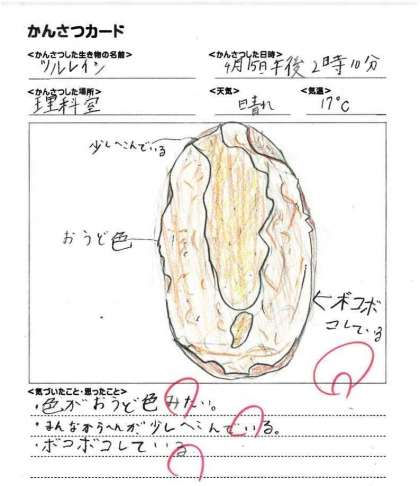 かんさつカード
<かんさつした生き物の名前>
ツルレイシ
<かんさつした日時>
4月15日午後2時10分
<かんさつした場所>
理科室
<天気>
晴れ
<気温>
17℃
少しへこんでいる
おうど色
ボコボ
コしている
<気づいたこと・思ったこと>
・色がおうど色みたい。
・まんなからへんが少しへこんでいる。
・ボコボコしている